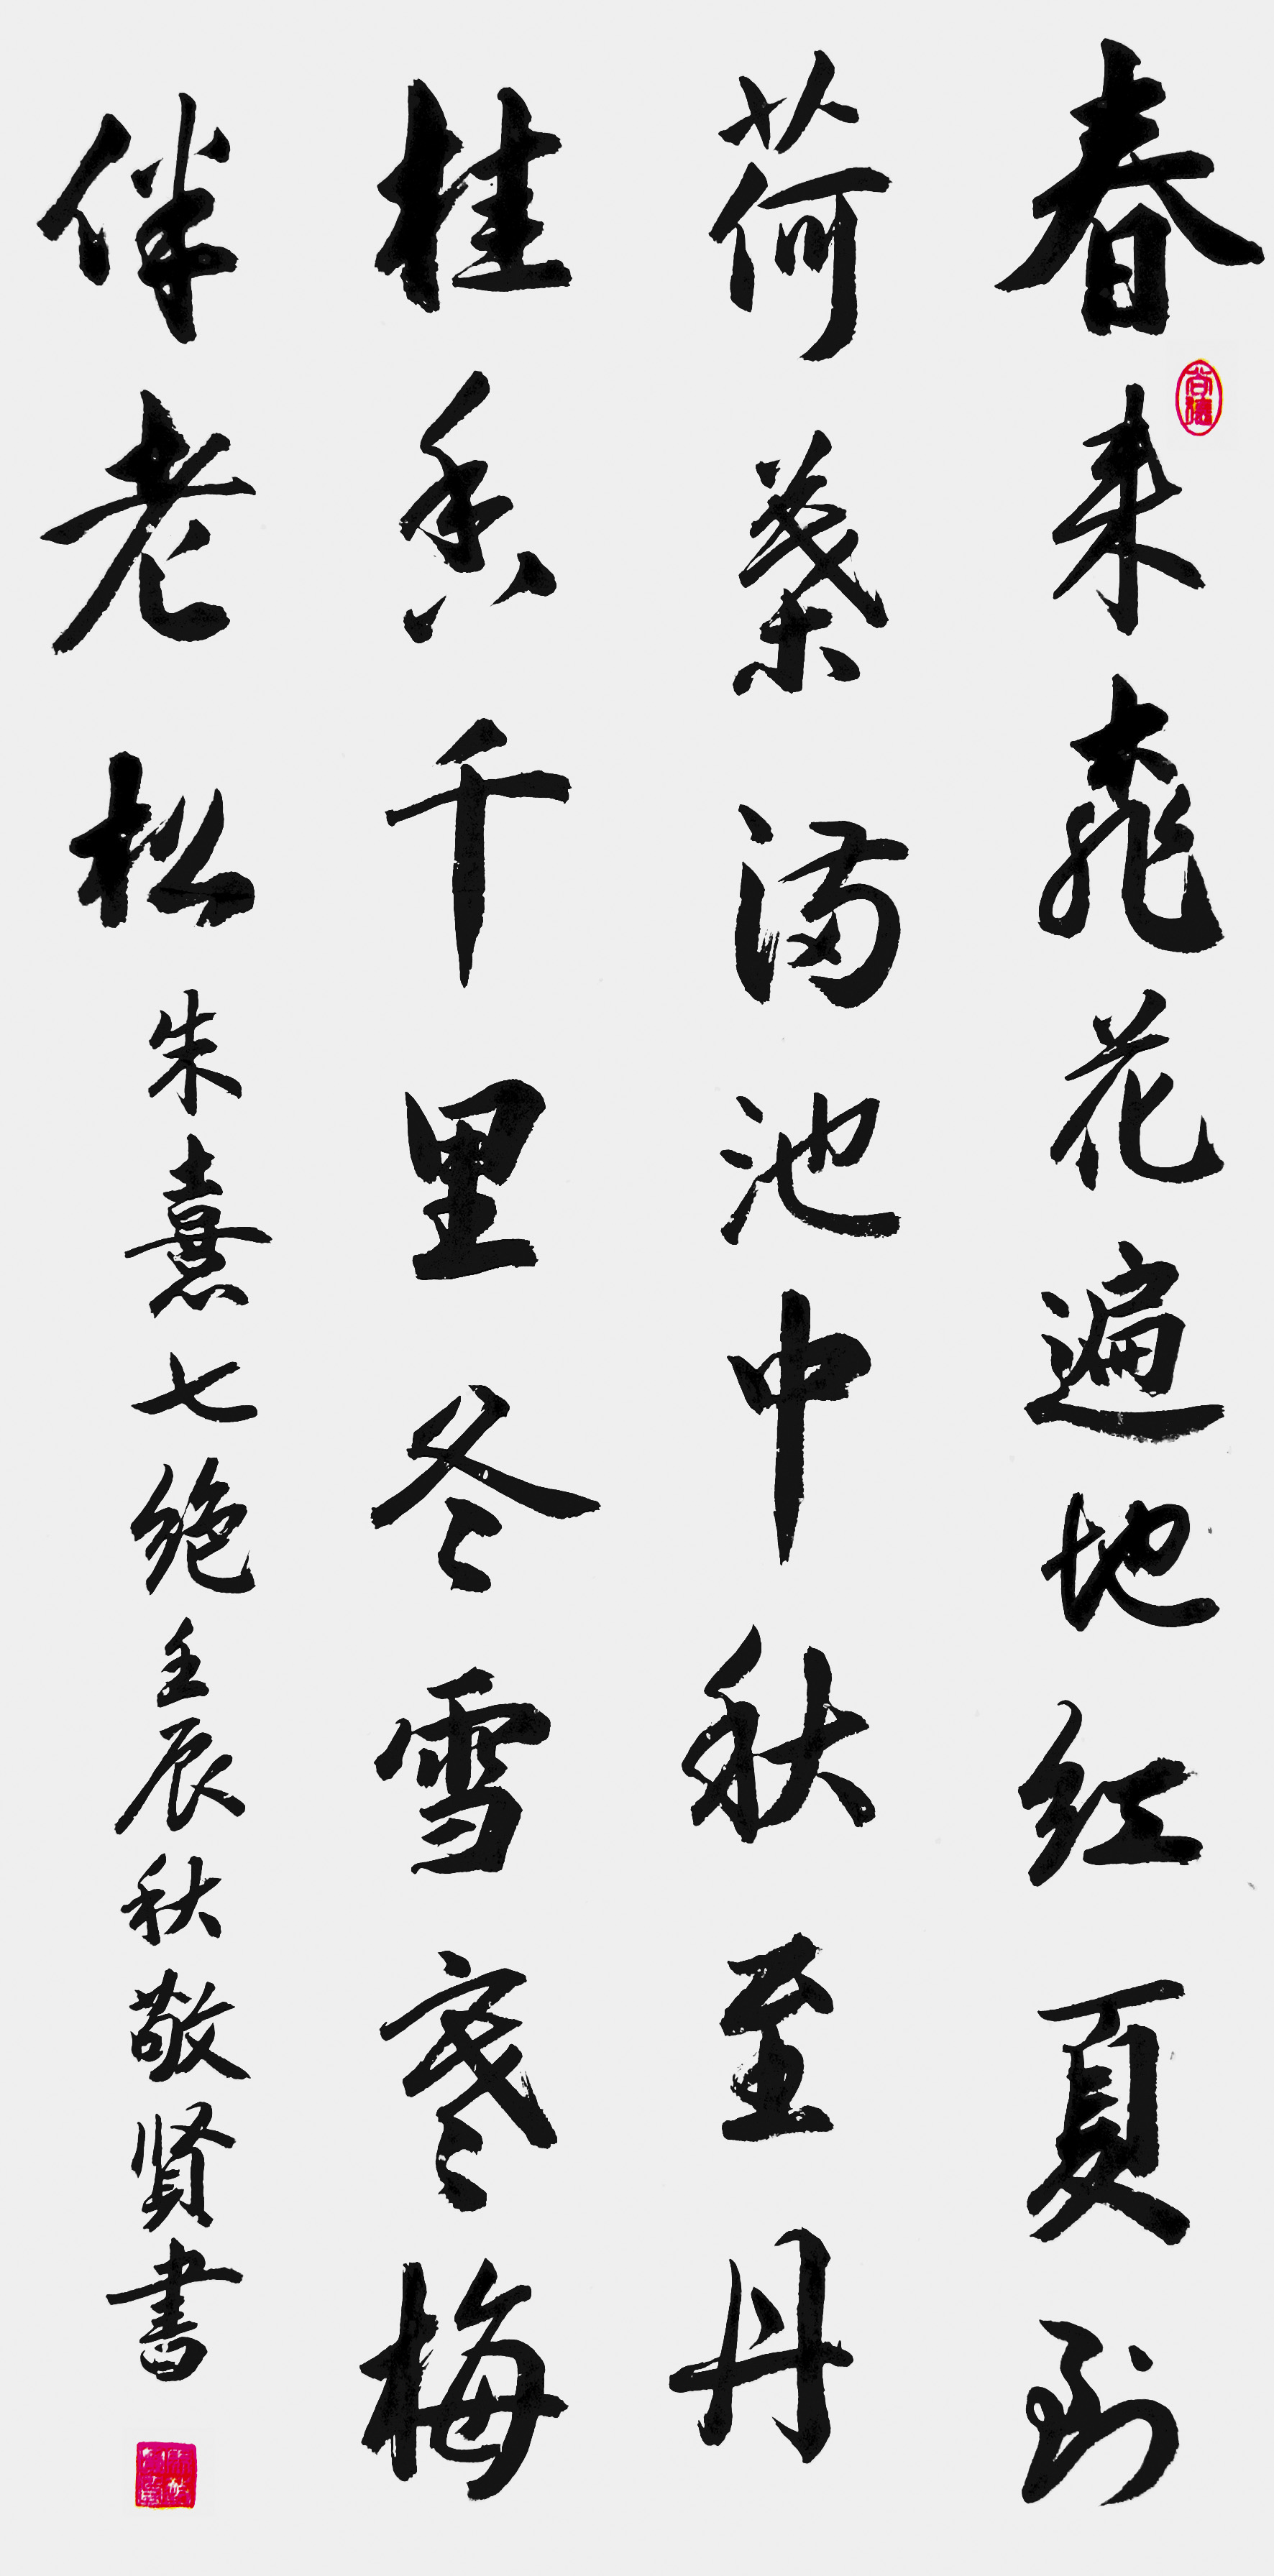 春来飛花遍地红夏到
荷葉满池中秋至丹
桂香千里冬雪寒梅
伴老松
朱熹七绝壬辰秋敬贤書
尚德